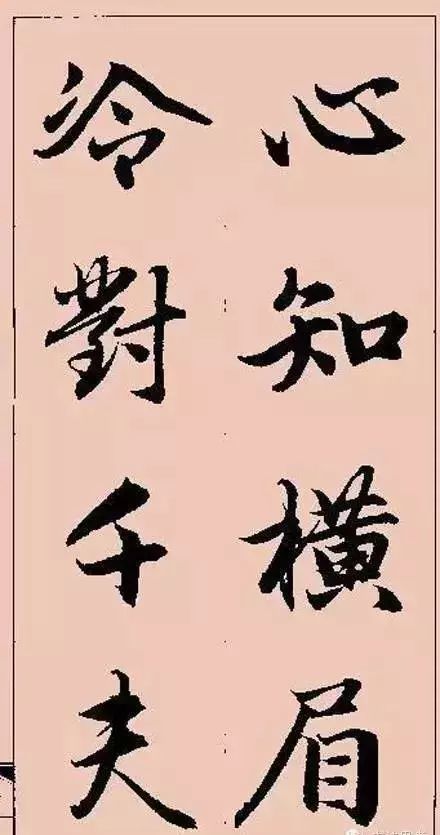 心知横眉
冷對千夫